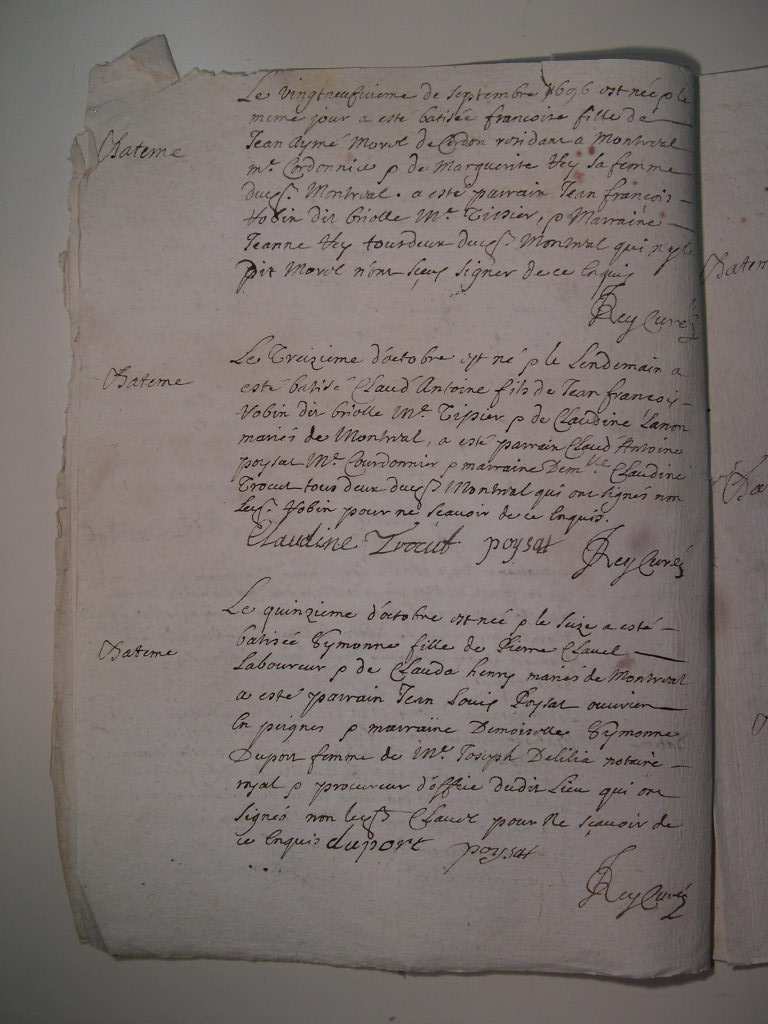 Le vingtneufvieme de septembre 1696 est née & le
Bateme
meme jour a esté batisée francoise fille de
Jean Aymé Morel de Cordon residant a Montreal
mre Cordonnier & de Marguerite Rey sa femme
dudst Montreal. a esté parrain Jean françois
Robin dit briolle Mre Tissier, & Marraine
Jeanne Rey tous deux dudst Montreal qui n'y le
dit Morel n'ont sceu signer de ce Enquis
Rey Curé
Le Treizieme d'octobre est né & le Lendemain a
Bateme
esté batisé Claud' Antoine fils de Jean francois
Robin dit briolle Mre Tissier & de Claudine
mariés de Montreal, a esté parrain Claud Antoine
poysat Mre Courdonnier & marraine Demlle Claudine
Trocut tous deux dudst Montreal qui ont signés non
ledst Robin pour ne sçavoir de ce Enquis.
Claudine Trocut poysat
Rey Curé
Le quinzieme d'octobre est née & le seize a esté
Bateme
batisée Eymonne fille de Pierre Clavel
Laboureur & de Clauda henry mariés de Montreal
a esté parrain Jean Louis Poysat ouvrier
En peignes & marraine Demoiselle Eymonne
Duport femme de Mre Joseph Delilia notaire
royal & procureur d'office dudit Lieu qui ont
signés non ledst Clavel pour ne sçavoir de
ce Enquis duport poysat
Rey Curé
Batem
Ba